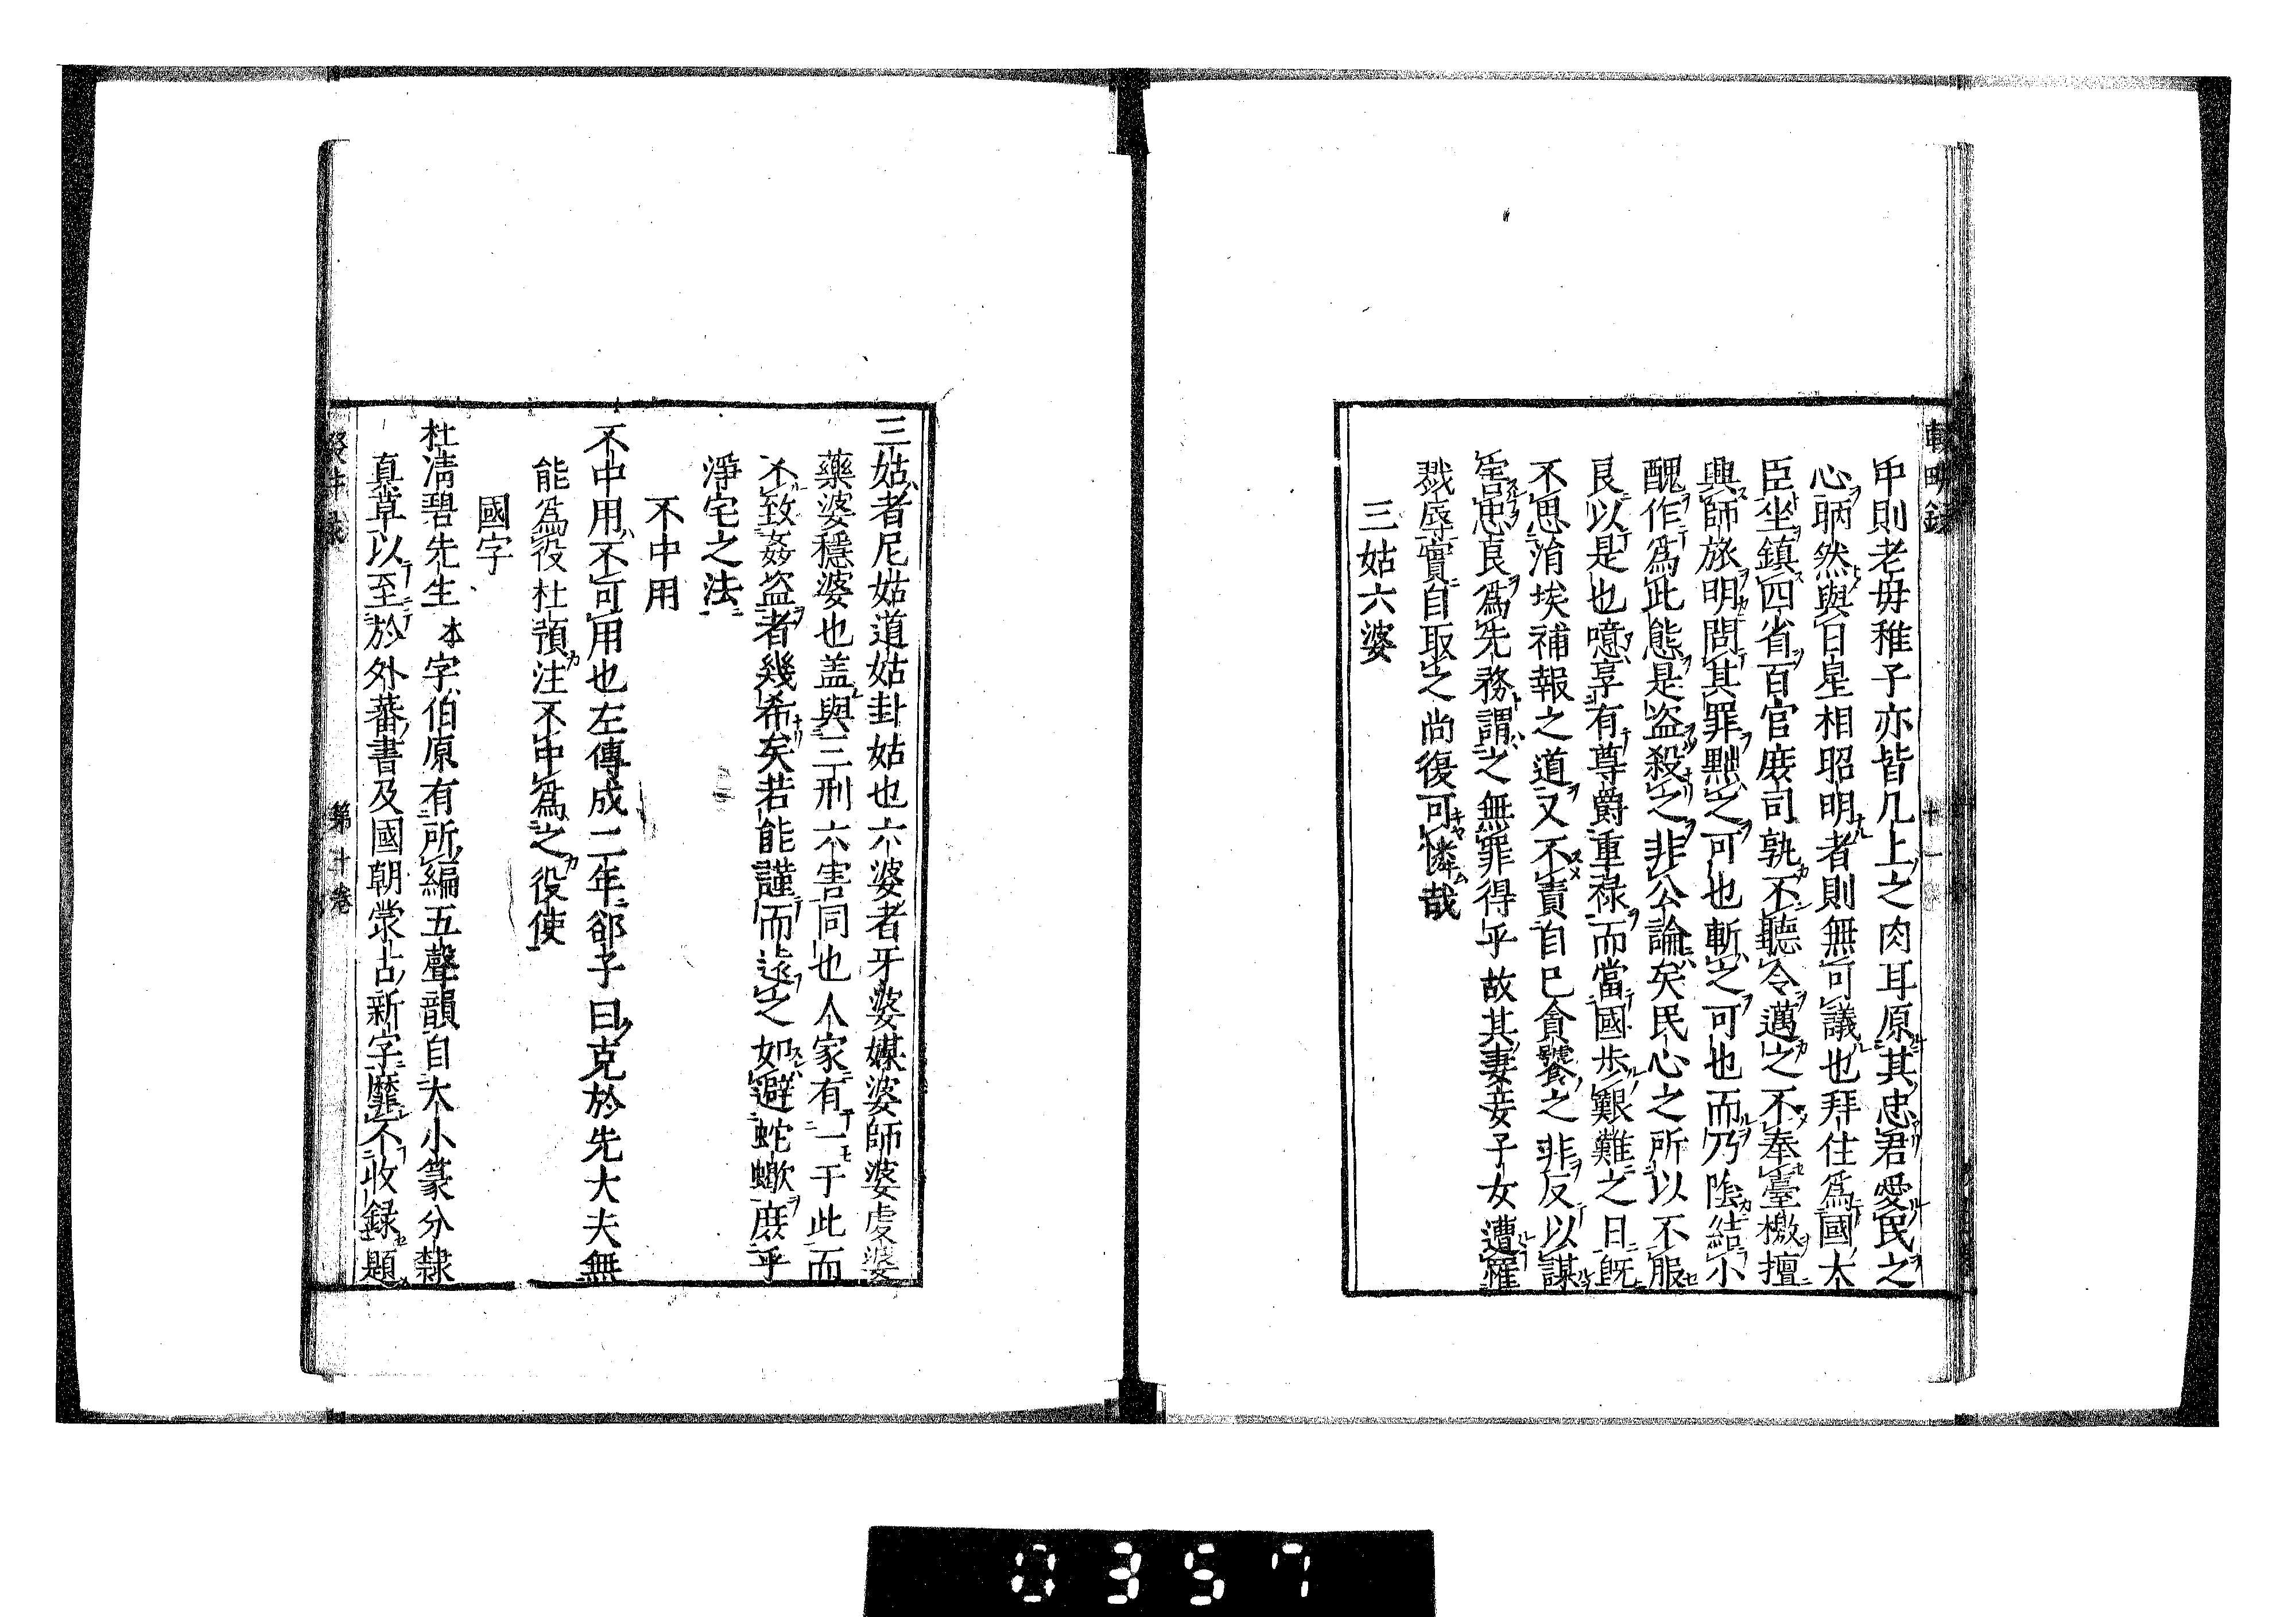 輟畊録 十一
中則老毋稚子亦皆几上之肉耳原其忠君愛民之
心昞然與日星相昭明者則無可議也拜住爲國大
臣坐鎮四省百官庻司孰不聽令邁之不奉臺檄擅
興師旅明問其罪黜之可也斬之可也而乃陰結小
醜作爲此態是盗殺之非公論矣民心之所以不服
良以是也噫享有尊爵重禄而當國歩艱難之日旣
不思涓埃補報之道又不責自已貪饕之非反以謀
害忠良爲先務謂之無罪得乎故其妻妾子女遭罹
戮辱實自取之尚復可憐哉
三姑六婆
三姑者尼姑道姑卦姑也六婆者牙婆媒婆師婆虔婆
藥婆穩婆也盖與三刑六害同也人家有一于此而
不致姦盗者幾希矣若能謹而遠之如避蛇蠍庻乎
淨宅之法
不中用
不中用不可用也左傳成二年郤子曰克於先大夫無
能爲役杜預注不中爲之役使
國字
杜清碧先生本字伯原有所編五聲韻自大小篆分隸
真草以至於外蕃書及國朝䝉古新字靡不收録題
輟畊録 第十卷